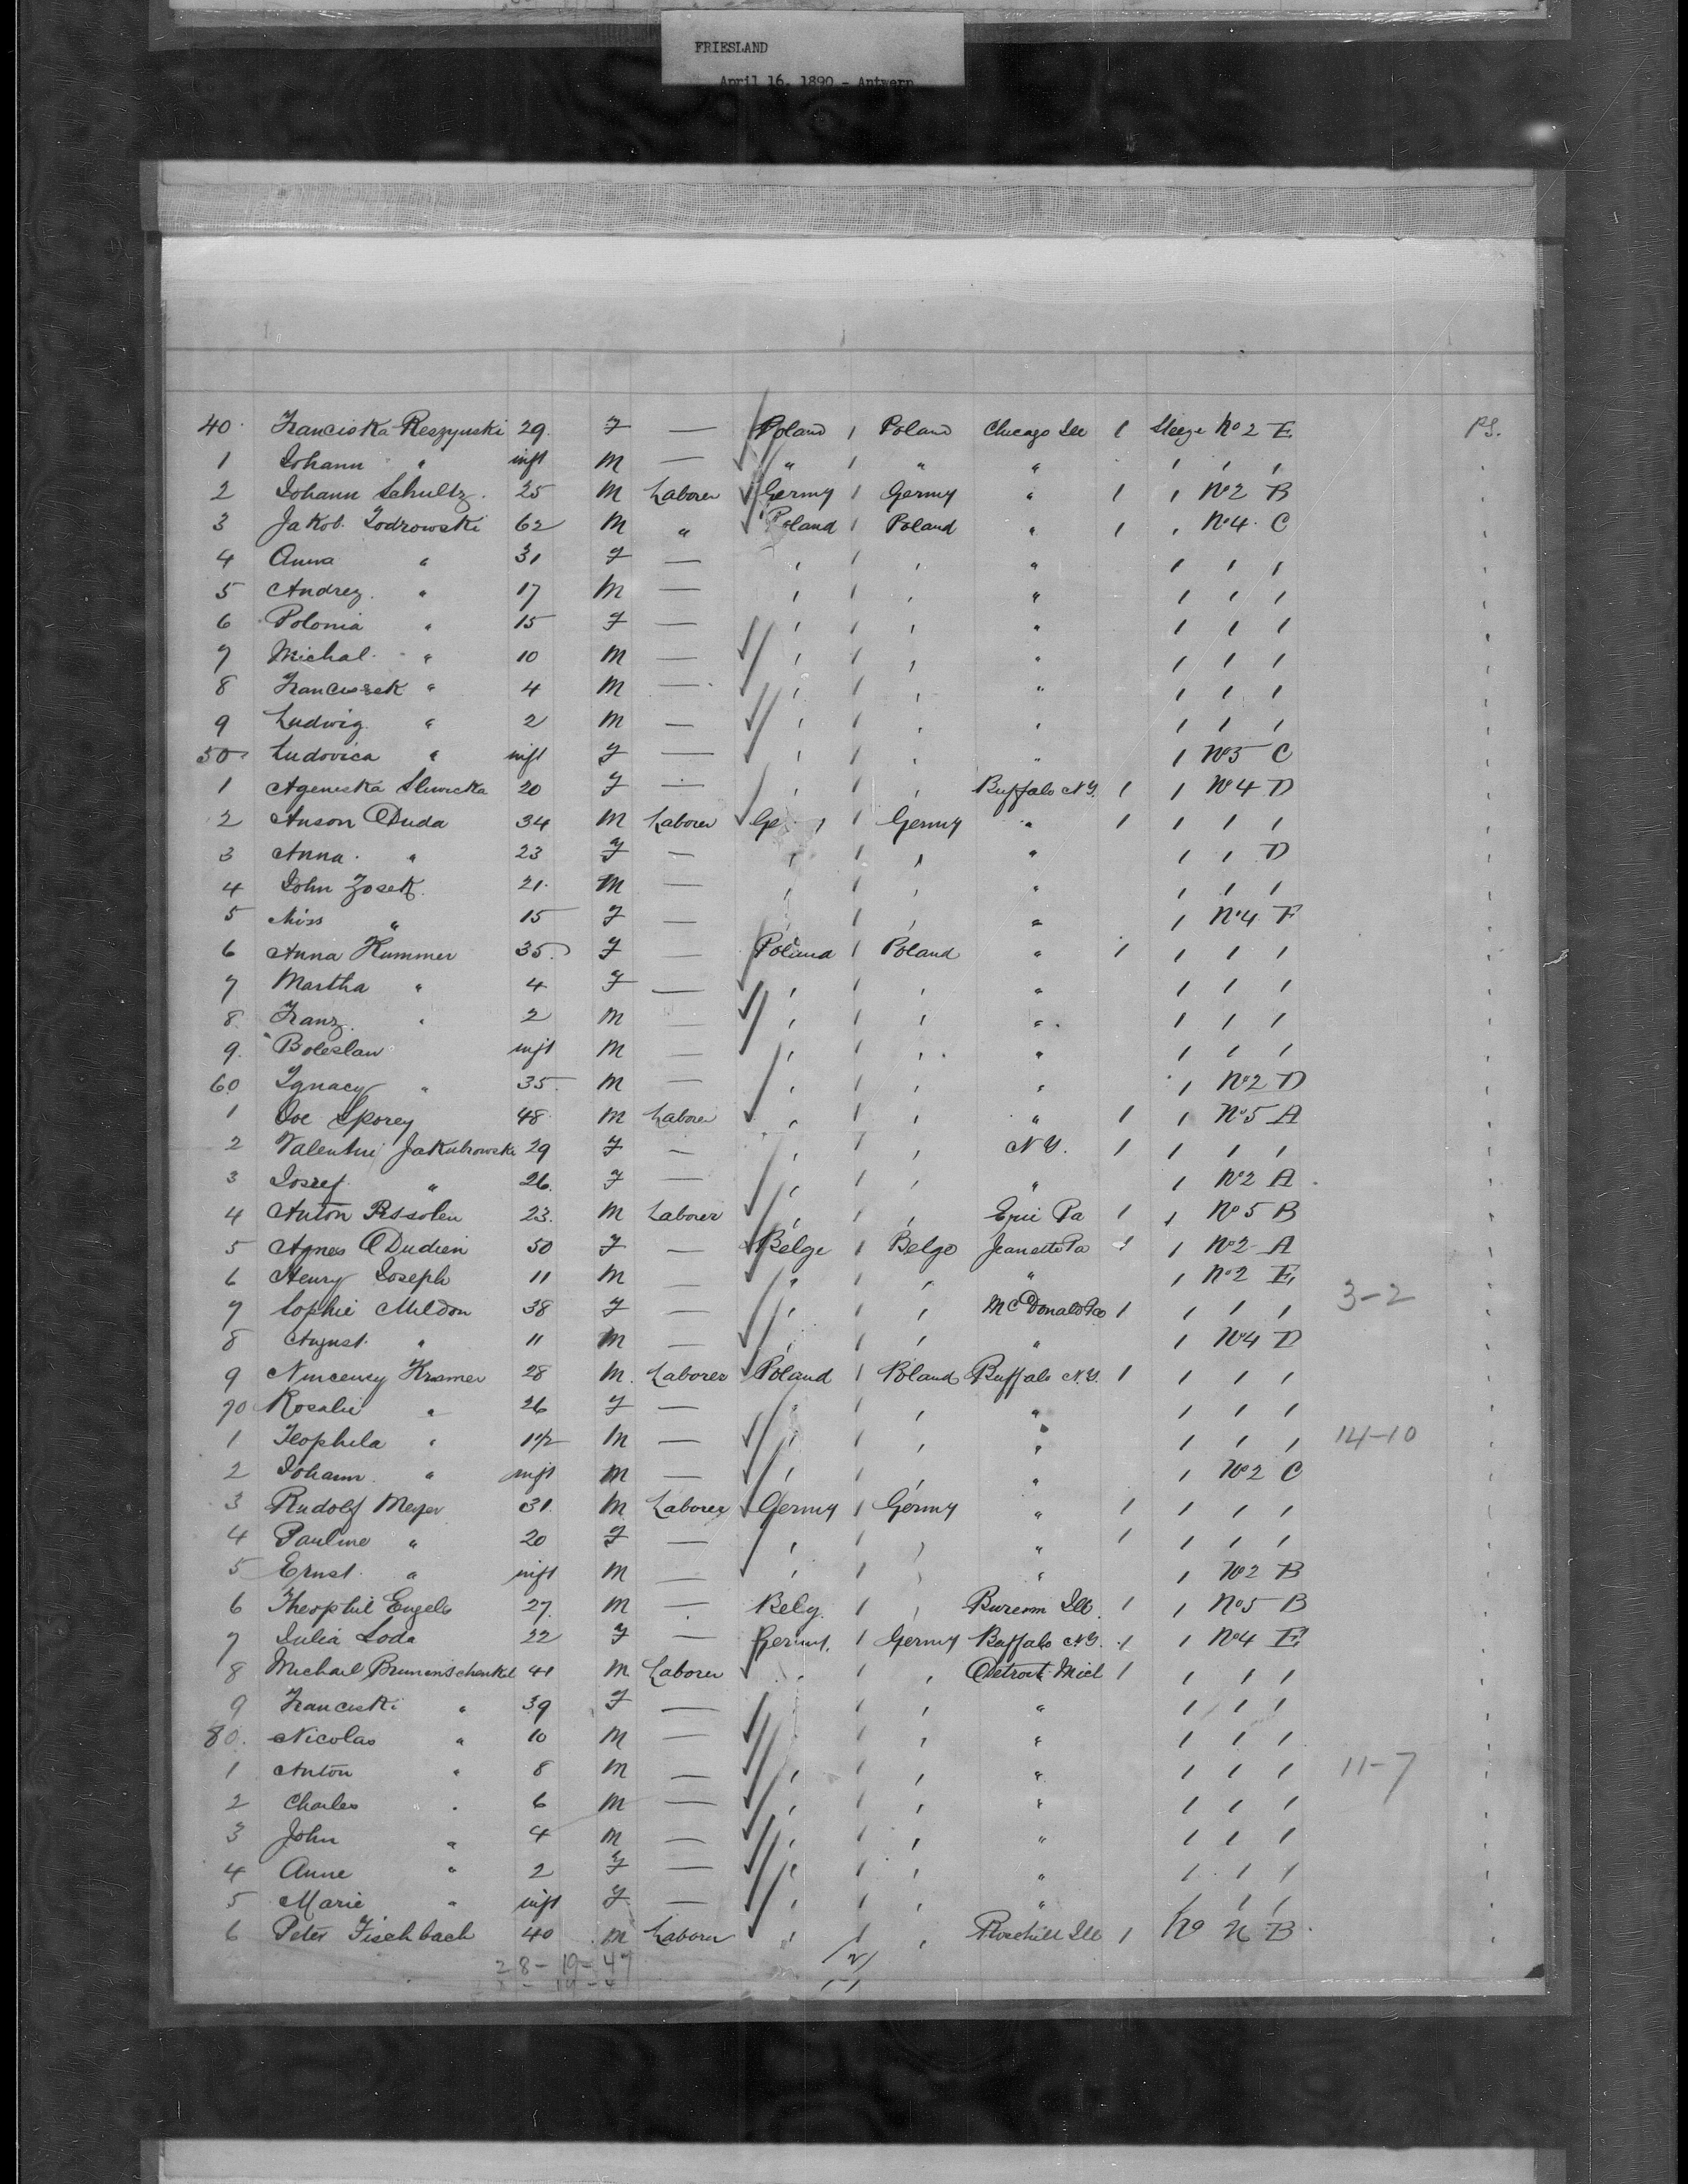 FRIESLAND
April 16, 1890 - Antwerp
40 Franciska Reszynski 29 F — Poland " Poland Chicago Ill 1 Steege No 2 E PS.
1 Johann " inft M — " " " " " " "
2 Johann Schultz 25 M Laborer Germy " Germy " 1 " No 2 B "
3 Jakob Zodrowski 62 M " Poland " Poland " 1 " No 4 C "
4 Anna " 31 F — " " " " " " " "
5 Andrez " 17 M — " " " " " " " "
6 Polonia " 15 F — " " " " " " " "
7 Michal " 10 M — " " " " " " " "
8 Franciszek " 4 M — " " " " " " " "
9 Ludwig " 2 M — " " " " " " " "
50 Ludovica " inft F — " " " " " No 5 C "
1 Ageneska Sliwicka 20 F — " " " Buffalo N.Y. 1 " No 4 D "
2 Anson Duda 34 M Laborer Ge " Germy " 1 " " " "
3 Anna " 23 F — " " " " " " D "
4 John Zosek 21 M — " " " " " " " "
5 Miss " 15 F — " " " " " No 4 F "
6 Anna Kummer 35 F — Poland " Poland " 1 " " " "
7 Martha " 4 F — " " " " " " " "
8 Franz " 2 M — " " " " " " " "
9 Boleslaw inft M — " " " " " " " "
60 Ignacy " 35 M — " " " " " No 2 D "
1 Joe Sporey 48 M Laborer " " " " 1 " No 5 A "
2 Valentin Jakubrowski 29 F — " " " N.Y. 1 " " " "
3 Josef " 26 F — " " " " " No 2 A "
4 Anton 23 M Laborer " " " Erie Pa 1 " No 5 B "
5 Agnes Dudien 50 F — Belge " Belge Jeanette Pa 1 " No 2 A "
6 Henry Joseph 11 M — " " " " " No 2 E "
7 Sophie Mildon 38 F — " " " McDonald Pa 1 " " " 3-2 "
8 August " 11 M — " " " " " No 4 D "
9 Kramer 28 M Laborer Poland " Poland Buffalo N.Y. 1 " " " "
70 Rosalie " 26 F — " " " " " " " "
1 Teophila " 1 1/2 M — " " " " " " " 14-10 "
2 Johann " inft M — " " " " " No 2 C "
3 Rudolf Meyer 31 M Laborer Germy " Germy " 1 " " " "
4 Pauline " 20 F — " " " " 1 " " " "
5 Ernst " inft M — " " " " " No 2 B "
6 Theophil Engels 27 M — Belg. " " Ill 1 " No 5 B "
7 Julia Loda 22 F — Germy " Germy Buffalo N.Y. 1 " No 4 E "
8 Michael Brunenschenkel 41 M Laborer " " Detroit Mich 1 " " " "
9 Franciski " 39 F — " " " " " " "
80 Nicolas " 10 M — " " " " " " "
1 Anton " 8 M — " " " " " " " 11-7 "
2 Charles " 6 M — " " " " " " " "
3 John " 4 M — " " " " " " " "
4 Anne " 2 F — " " " " " " " "
5 Marie " inft F — " " " " " " " "
6 Peter Fischbach 40 M Laborer " " " Rosehill Ill 1 No N B "
28-19-47